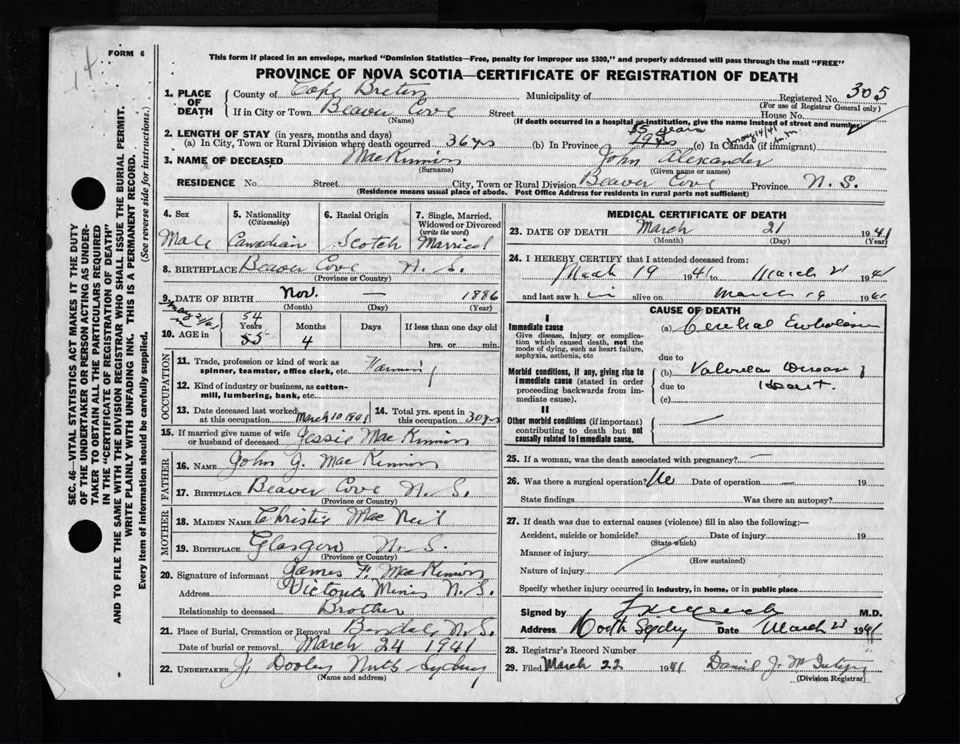 14.
FORM 6
This form if placed in an envelope, marked "Dominion Statistics—Free, penalty for improper use $300," and properly addressed will pass through the mail "FREE"
PROVINCE OF NOVA SCOTIA—CERTIFICATE OF REGISTRATION OF DEATH
1. PLACE OF DEATH
County of Cape Breton Municipality of Registered No. 305
(For use of Registrar General only)
If in City or Town Beaver Cove Street House No.
(Name) (If death occurred in a hospital or institution, give the name instead of street and number)
2. LENGTH OF STAY (in years, months and days) 55 years May 14/41
(a) In City, Town or Rural Division where death occurred 36 yrs (b) In Province (c) In Canada (if immigrant)
3. NAME OF DECEASED MacKinnon John Alexander
(Surname) (Given name or names)
RESIDENCE No. Street City, Town or Rural Division Beaver Cove Province N. S.
(Residence means usual place of abode. Post Office Address for residents in rural parts not sufficient)
4. Sex Male
5. Nationality (Citizenship) Canadian
6. Racial Origin Scotch
7. Single, Married, Widowed or Divorced (write the word) Married
8. BIRTHPLACE Beaver Cove N. S.
(Province or Country)
9. DATE OF BIRTH Nov. — 1886
(Month) (Day) (Year)
10. AGE in 54 55 Years 4 Months Days If less than one day old hrs. or min.
OCCUPATION
11. Trade, profession or kind of work as spinner, teamster, office clerk, etc. Farming
12. Kind of industry or business, as cotton-mill, lumbering, bank, etc.
13. Date deceased last worked at this occupation March 10 1941
14. Total yrs. spent in this occupation 30 yrs
15. If married give name of wife or husband of deceased Jessie MacKinnon
FATHER
16. NAME John G. MacKinnon
17. BIRTHPLACE Beaver Cove N. S.
(Province or Country)
MOTHER
18. MAIDEN NAME Christie MacNeil
19. BIRTHPLACE Glasgow N. S.
(Province or Country)
20. Signature of informant James F. MacKinnon
Address Victoria Mines N. S.
Relationship to deceased Brother
21. Place of Burial, Cremation or Removal N. S.
Date of burial or removal March 24 1941
22. UNDERTAKER J. Dooley North Sydney
(Name and address)
MEDICAL CERTIFICATE OF DEATH
23. DATE OF DEATH March 21 1941
(Month) (Day) (Year)
24. I HEREBY CERTIFY that I attended deceased from:
March 19 1941 to March 21 1941
and last saw him alive on March 19 1941
CAUSE OF DEATH
I
Immediate cause
Give disease, injury or complication which caused death, not the mode of dying, such as heart failure, asphyxia, asthenia, etc
(a) Cerebral Embolism
due to
Morbid conditions, if any, giving rise to immediate cause (stated in order proceeding backwards from immediate cause).
(b) Valvular Disease
due to Heart.
(c)
II
Other morbid conditions (if important) contributing to death but not causally related to immediate cause.
25. If a woman, was the death associated with pregnancy? —
26. Was there a surgical operation? No Date of operation — 19
State findings Was there an autopsy?
27. If death was due to external causes (violence) fill in also the following:—
Accident, suicide or homicide? Date of injury 19
(State which)
Manner of injury
(How sustained)
Nature of injury
Specify whether injury occurred in industry, in home, or in public place
Signed by M.D.
Address North Sydney Date March 23 1941
28. Registrar's Record Number
29. Filed March 22 1941 Daniel J.
(Division Registrar)
SEC. 46—VITAL STATISTICS ACT MAKES IT THE DUTY
OF THE UNDERTAKER OR PERSON ACTING AS UNDERTAKER TO OBTAIN ALL THE PARTICULARS REQUIRED
IN THE "CERTIFICATE OF REGISTRATION OF DEATH"
AND TO FILE THE SAME WITH THE DIVISION REGISTRAR WHO SHALL ISSUE THE BURIAL PERMIT.
WRITE PLAINLY WITH UNFADING INK. THIS IS A PERMANENT RECORD.
Every item of information should be carefully supplied. (See reverse side for instructions.)